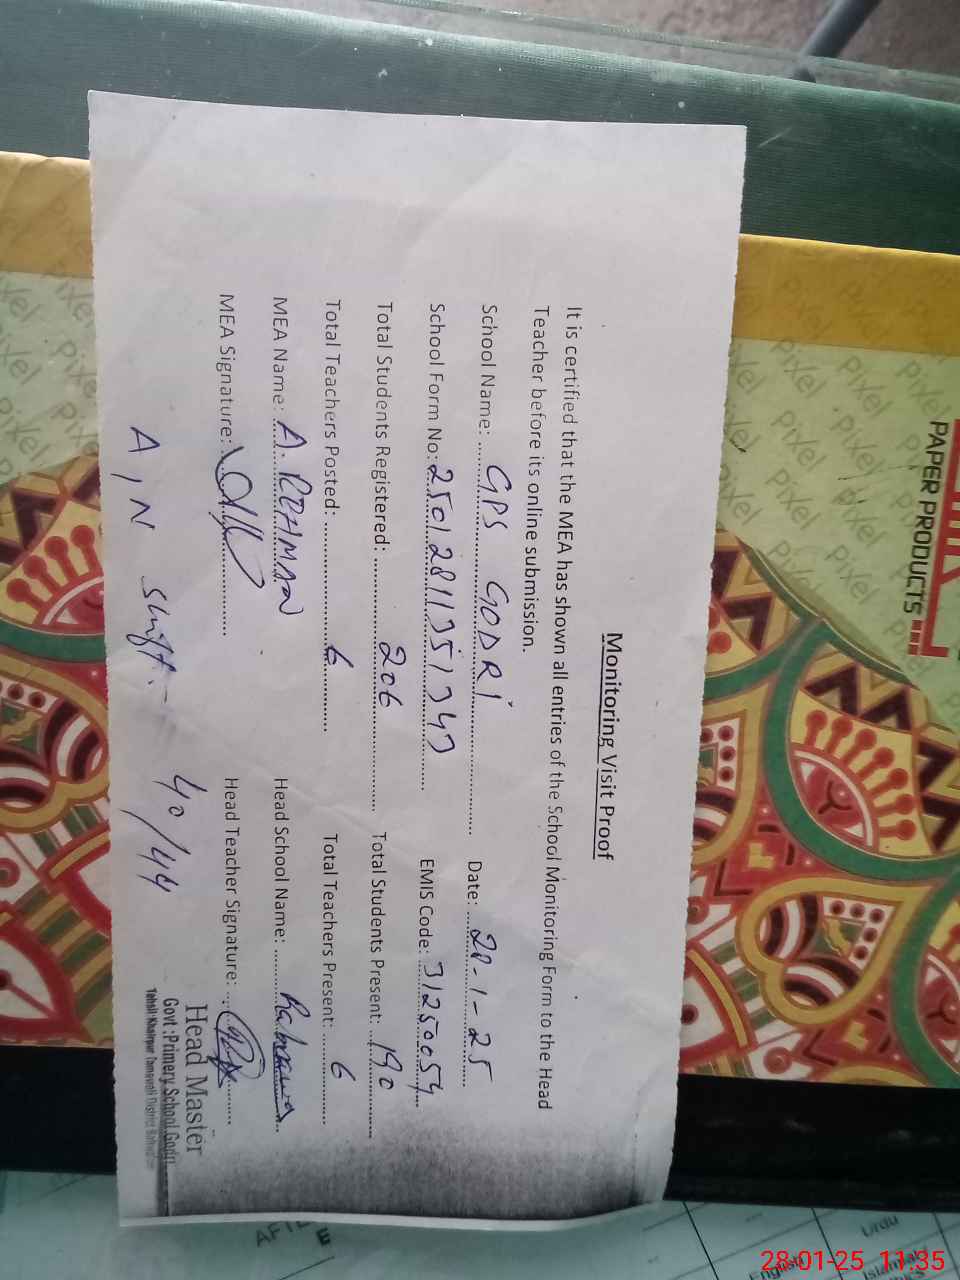 Monitoring Visit Proof
It is certified that the MEA has shown all entries of the School Monitoring Form to the Head
Teacher before its online submission.
School Name: GPS GODRI Date: 28-1-25
School Form No: EMIS Code: 31250054
Total Students Registered: 206 Total Students Present: 190
Total Teachers Posted: 6 Total Teachers Present: 6
MEA Name: A. REHMAN Head School Name:
MEA Signature: Head Teacher Signature:
A, N shift - 40/44
Head Master
Govt: Primery School Godri
Tehsil Khairpur Tamewali District
PAPER PRODUCTS
Pixel
English
Urdu
Islamiat
28-01-25 11:35